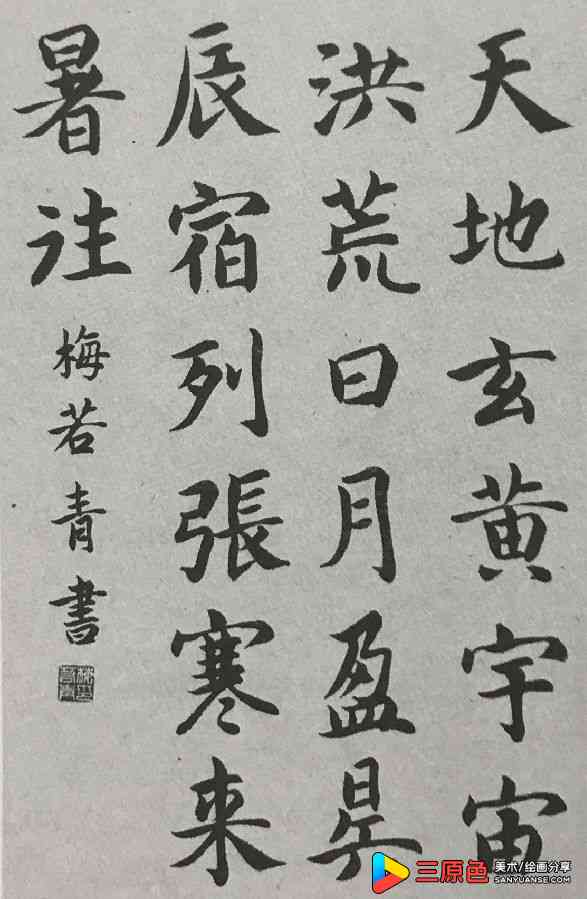 天地玄黄宇宙
洪荒日月盈昃
辰宿列張寒来
暑往
梅若青書
三原色
美术/绘画分享
SANYUANSE.COM